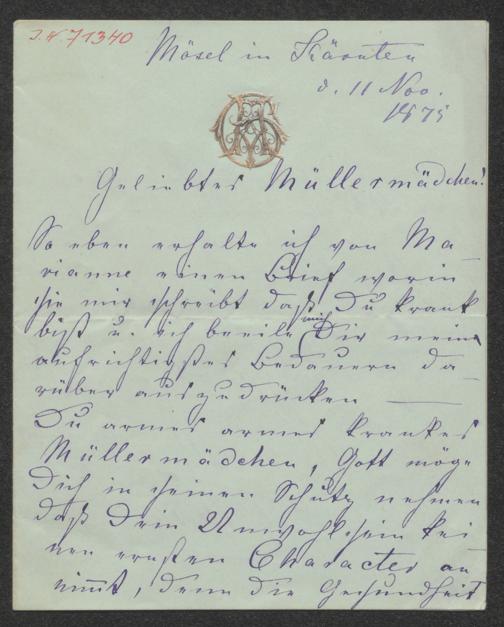 J.N. 71340
Mösel in Kärnten
d. 11 Nov.
1875
Geliebtes Müllermädchen!
So eben erhalte ich von Ma
rianne einen Brief worin
sie mir schreibt daß Du krank
bist u. ich beeile mich Dir mein
aufrichtigstes Bedauern da
rüber auszudrücken ———
Du armes armes krankes
Müllermädchen, Gott möge
Dich in seinen Schutz nehmen
daß Dein Unwohlsein kei
nen ernsten Character an
nimt, denn die Gesundheit